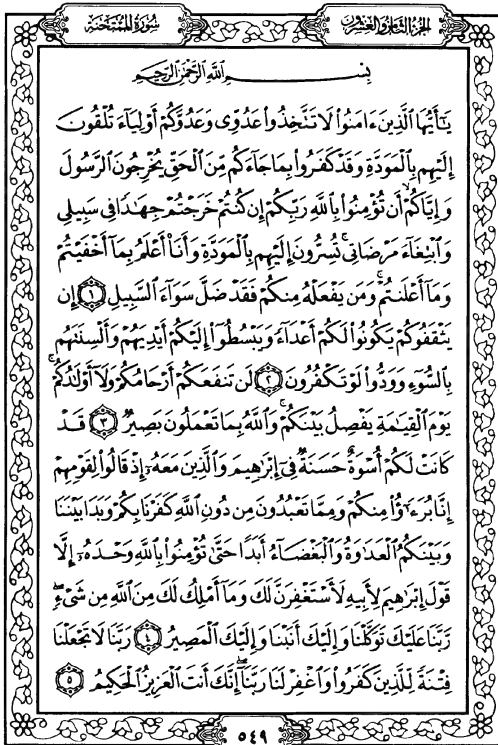 سُورَةُ المُمْتَحنَة
الجُزءُ الثَّامِنُ وَالعِشْرُونَ
بِسْمِ اللَّهِ الرَّحْمَٰنِ الرَّحِيمِ
يَٰٓأَيُّهَا ٱلَّذِينَ ءَامَنُوا۟ لَا تَتَّخِذُوا۟ عَدُوِّى وَعَدُوَّكُمْ أَوْلِيَآءَ تُلْقُونَ
إِلَيْهِم بِٱلْمَوَدَّةِ وَقَدْ كَفَرُوا۟ بِمَا جَآءَكُم مِّنَ ٱلْحَقِّ يُخْرِجُونَ ٱلرَّسُولَ
وَإِيَّاكُمْ ۙ أَن تُؤْمِنُوا۟ بِٱللَّهِ رَبِّكُمْ إِن كُنتُمْ خَرَجْتُمْ جِهَٰدًا فِى سَبِيلِى
وَٱبْتِغَآءَ مَرْضَاتِى ۚ تُسِرُّونَ إِلَيْهِم بِٱلْمَوَدَّةِ وَأَنَا۠ أَعْلَمُ بِمَآ أَخْفَيْتُمْ
وَمَآ أَعْلَنتُمْ ۚ وَمَن يَفْعَلْهُ مِنكُمْ فَقَدْ ضَلَّ سَوَآءَ ٱلسَّبِيلِ ١ إِن
يَثْقَفُوكُمْ يَكُونُوا۟ لَكُمْ أَعْدَآءً وَيَبْسُطُوٓا۟ إِلَيْكُمْ أَيْدِيَهُمْ وَأَلْسِنَتَهُم
بِٱلسُّوٓءِ وَوَدُّوا۟ لَوْ تَكْفُرُونَ ٢ لَن تَنفَعَكُمْ أَرْحَامُكُمْ وَلَآ أَوْلَٰدُكُمْ ۚ
يَوْمَ ٱلْقِيَٰمَةِ يَفْصِلُ بَيْنَكُمْ ۚ وَٱللَّهُ بِمَا تَعْمَلُونَ بَصِيرٌ ٣ قَدْ
كَانَتْ لَكُمْ أُسْوَةٌ حَسَنَةٌ فِىٓ إِبْرَٰهِيمَ وَٱلَّذِينَ مَعَهُۥٓ إِذْ قَالُوا۟ لِقَوْمِهِمْ
إِنَّا بُرَءَٰٓؤُا۟ مِنكُمْ وَمِمَّا تَعْبُدُونَ مِن دُونِ ٱللَّهِ كَفَرْنَا بِكُمْ وَبَدَا بَيْنَنَا
وَبَيْنَكُمُ ٱلْعَدَٰوَةُ وَٱلْبَغْضَآءُ أَبَدًا حَتَّىٰ تُؤْمِنُوا۟ بِٱللَّهِ وَحْدَهُۥٓ إِلَّا
قَوْلَ إِبْرَٰهِيمَ لِأَبِيهِ لَأَسْتَغْفِرَنَّ لَكَ وَمَآ أَمْلِكُ لَكَ مِنَ ٱللَّهِ مِن شَىْءٍ ۖ
رَّبَّنَا عَلَيْكَ تَوَكَّلْنَا وَإِلَيْكَ أَنَبْنَا وَإِلَيْكَ ٱلْمَصِيرُ ٤ رَبَّنَا لَا تَجْعَلْنَا
فِتْنَةً لِّلَّذِينَ كَفَرُوا۟ وَٱغْفِرْ لَنَا رَبَّنَآ ۖ إِنَّكَ أَنتَ ٱلْعَزِيزُ ٱلْحَكِيمُ ٥
٥٤٩